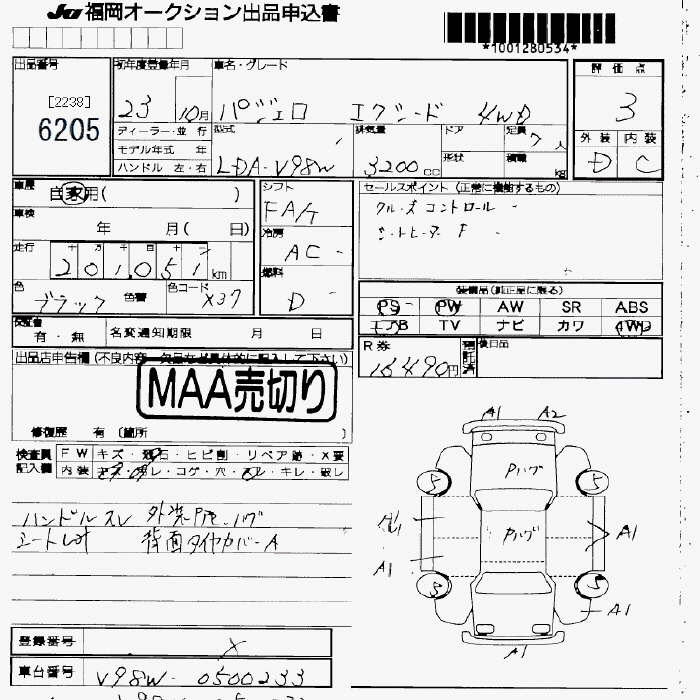 JU 福岡オークション出品申込書
*1001280534*
出品番号
[2238]
6205
初年度登録年月
23 10月
車名・グレード
パジェロ エクシード 4WD
評価点
3
外装 内装
D C
ディーラー・並行
モデル年式 年
ハンドル 左・右
型式
LDA-V98W
排気量
3200cc
ドア
形状
定員
7人
積載
kg
車歴
自家用( )
車検
年 月( 日)
走行
十 万 千 百 十 一
201,051km
色
ブラック 色替
色コード
X37
シフト
FA/T
冷房
AC
燃料
D
セールスポイント (正常に機能するもの)
クルーズコントロール
シートヒーター F
装備品(純正品に限る)
PS PW AW SR ABS
エアB TV ナビ カワ 4WD
保証書
有・無
名変通知期限 月 日
R券
16490円
預託済
後日品
出品店申告欄 (不良内容・欠品など具体的に記入して下さい)
MAA売切り
修復歴 有 (箇所 )
検査員
記入欄
FW キズ・飛石・ヒビ割・リペア跡・X要
内装 キズ・スレ・コゲ・穴・ヌレ・キレ・破レ
ハンドルスレ
シート
背面タイヤカバーA
A1 A2
Pハゲ
5 5
Pハゲ
A1
A1
5 5
A1
A1
登録番号
X
車台番号
V98W-0500233